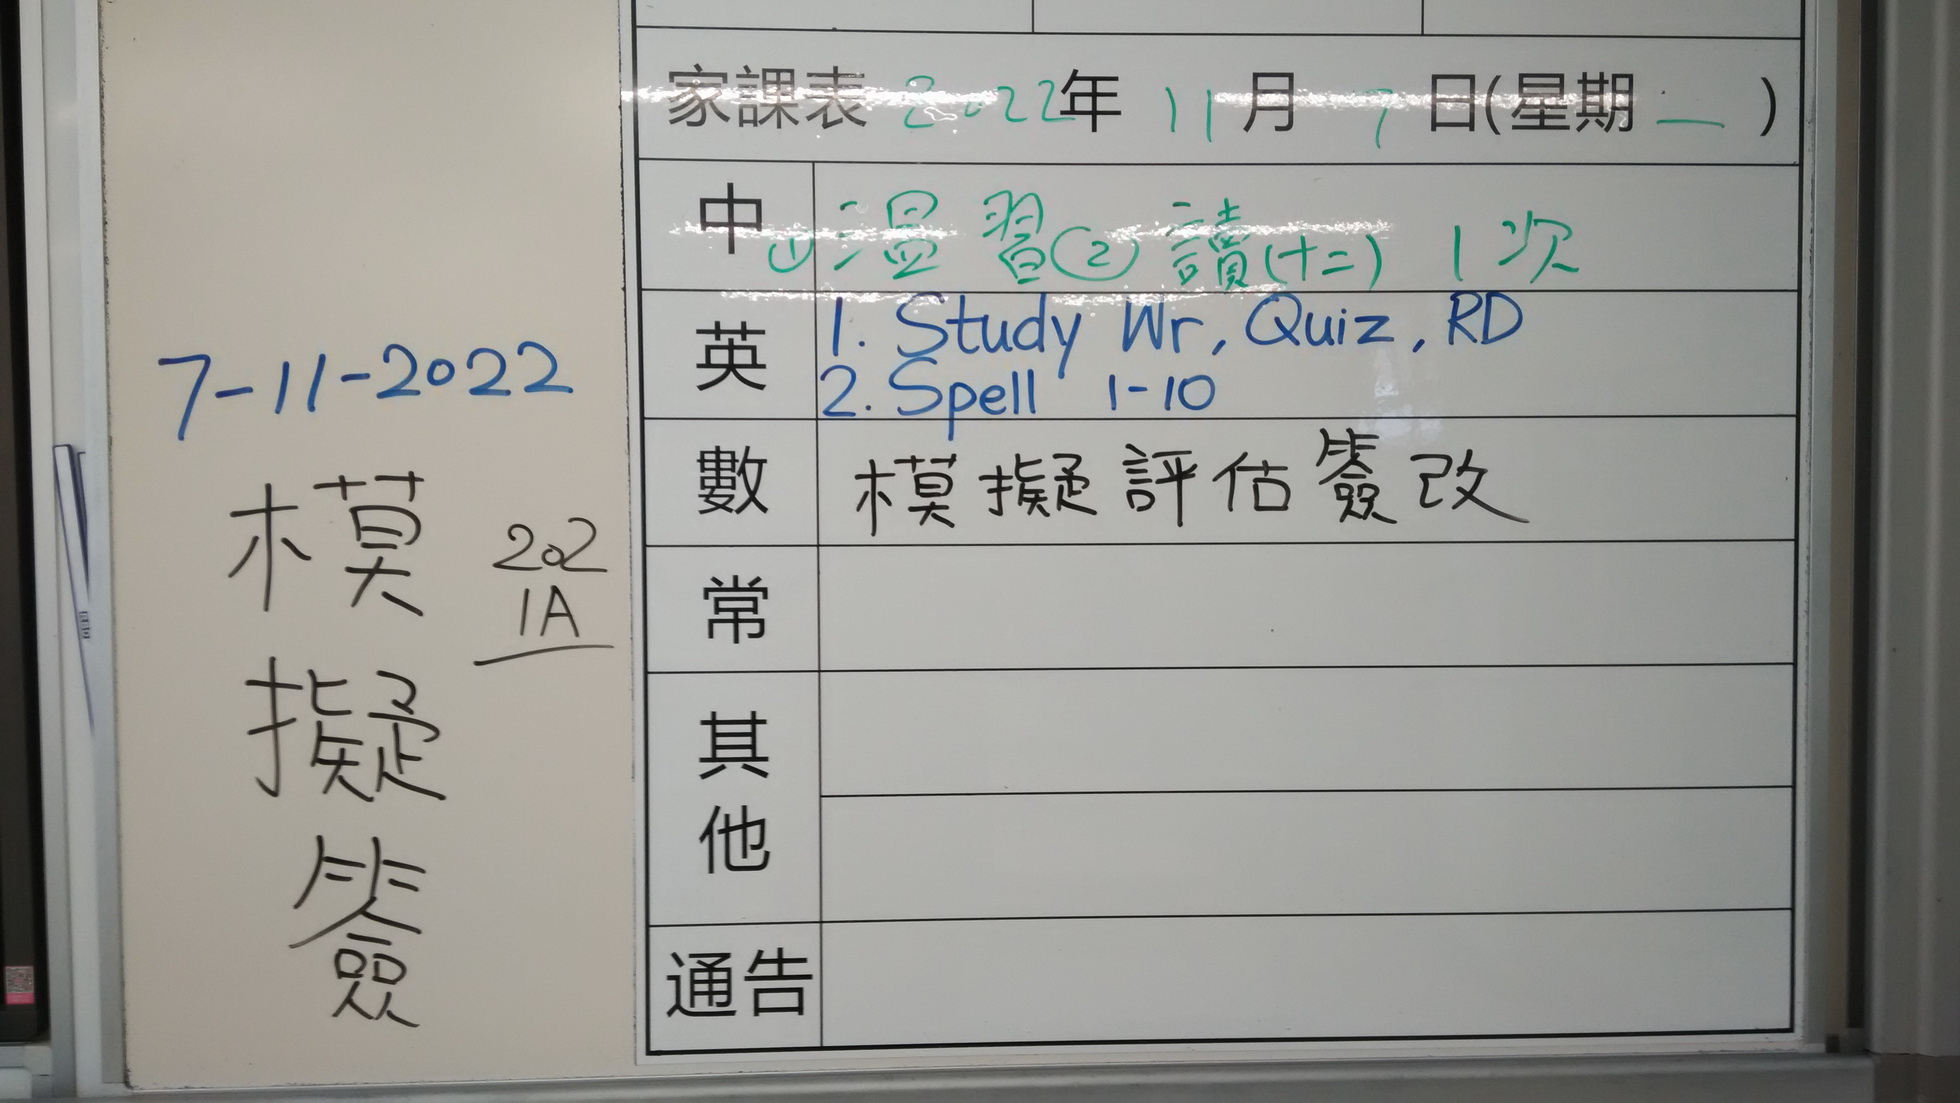 家課表 2022年 11月 7日(星期一)
中 ①温習②讀(十二) 1次
英 1. Study Wr, Quiz, RD
2. Spell 1-10
數 模擬評估簽改
常
其他
通告
7-11-2022
模擬簽
202
1A